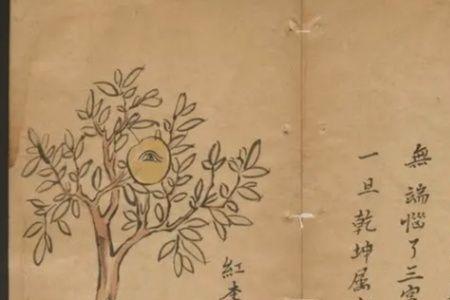 無端惱了三
一旦乾坤屬
紅